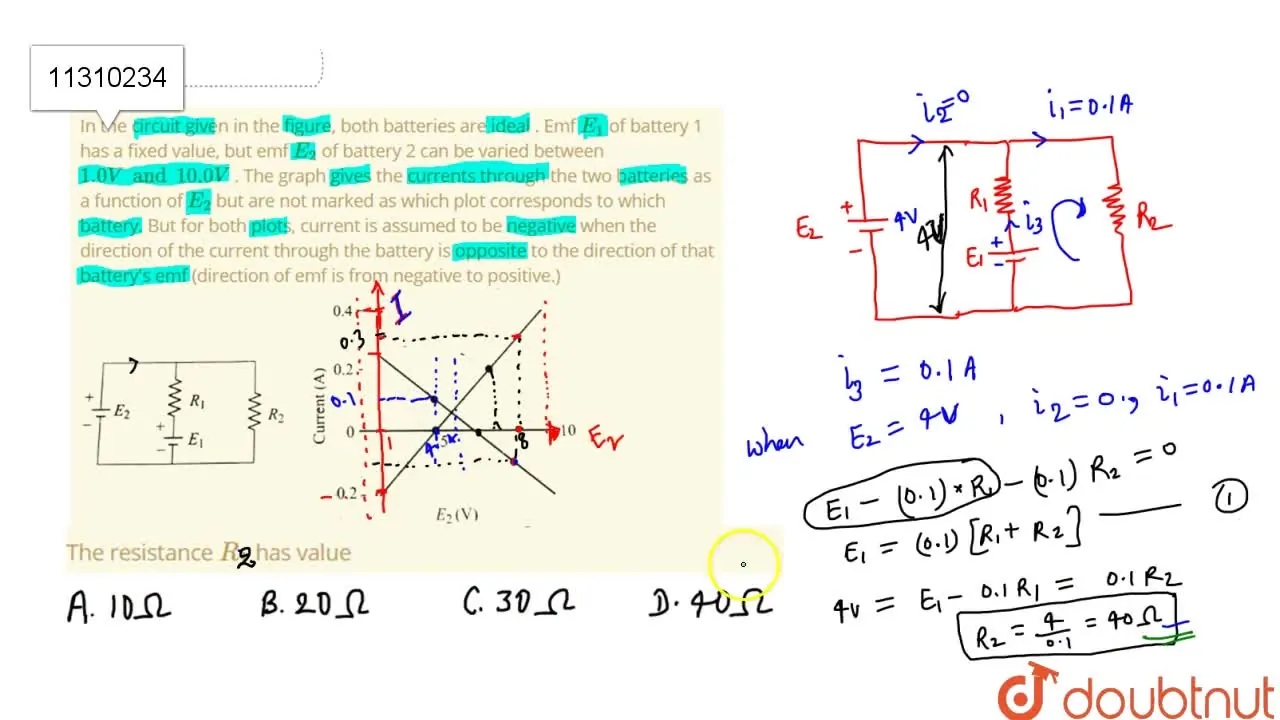 11310234
In the circuit given in the figure, both batteries are ideal . Emf E₁ of battery 1
has a fixed value, but emf E₂ of battery 2 can be varied between
1.0V and 10.0V . The graph gives the currents through the two batteries as
a function of E₂ but are not marked as which plot corresponds to which
battery. But for both plots, current is assumed to be negative when the
direction of the current through the battery is opposite to the direction of that
battery's emf (direction of emf is from negative to positive.)
+
E₂
−
R₁
+
E₁
−
R₂
I
0.4
0.3
0.2
0.1
0
−0.2
Current (A)
1
4
5
8
10
E₂
E₂ (V)
The resistance R₂ has value
A. 10Ω B. 20Ω C. 30Ω D. 40Ω
i₂=0
i₁=0.1A
+
E₂
−
4V
4V
R₁
i₃
+
E₁
−
R₂
i₃ = 0.1A
when E₂ = 4V , i₂=0, i₁=0.1A
E₁ − (0.1)*R₁ − (0.1) R₂ = 0
E₁ = (0.1) [R₁+ R₂] — ①
4V = E₁ − 0.1R₁ = 0.1R₂
R₂ = 4/0.1 = 40Ω
doubtnut